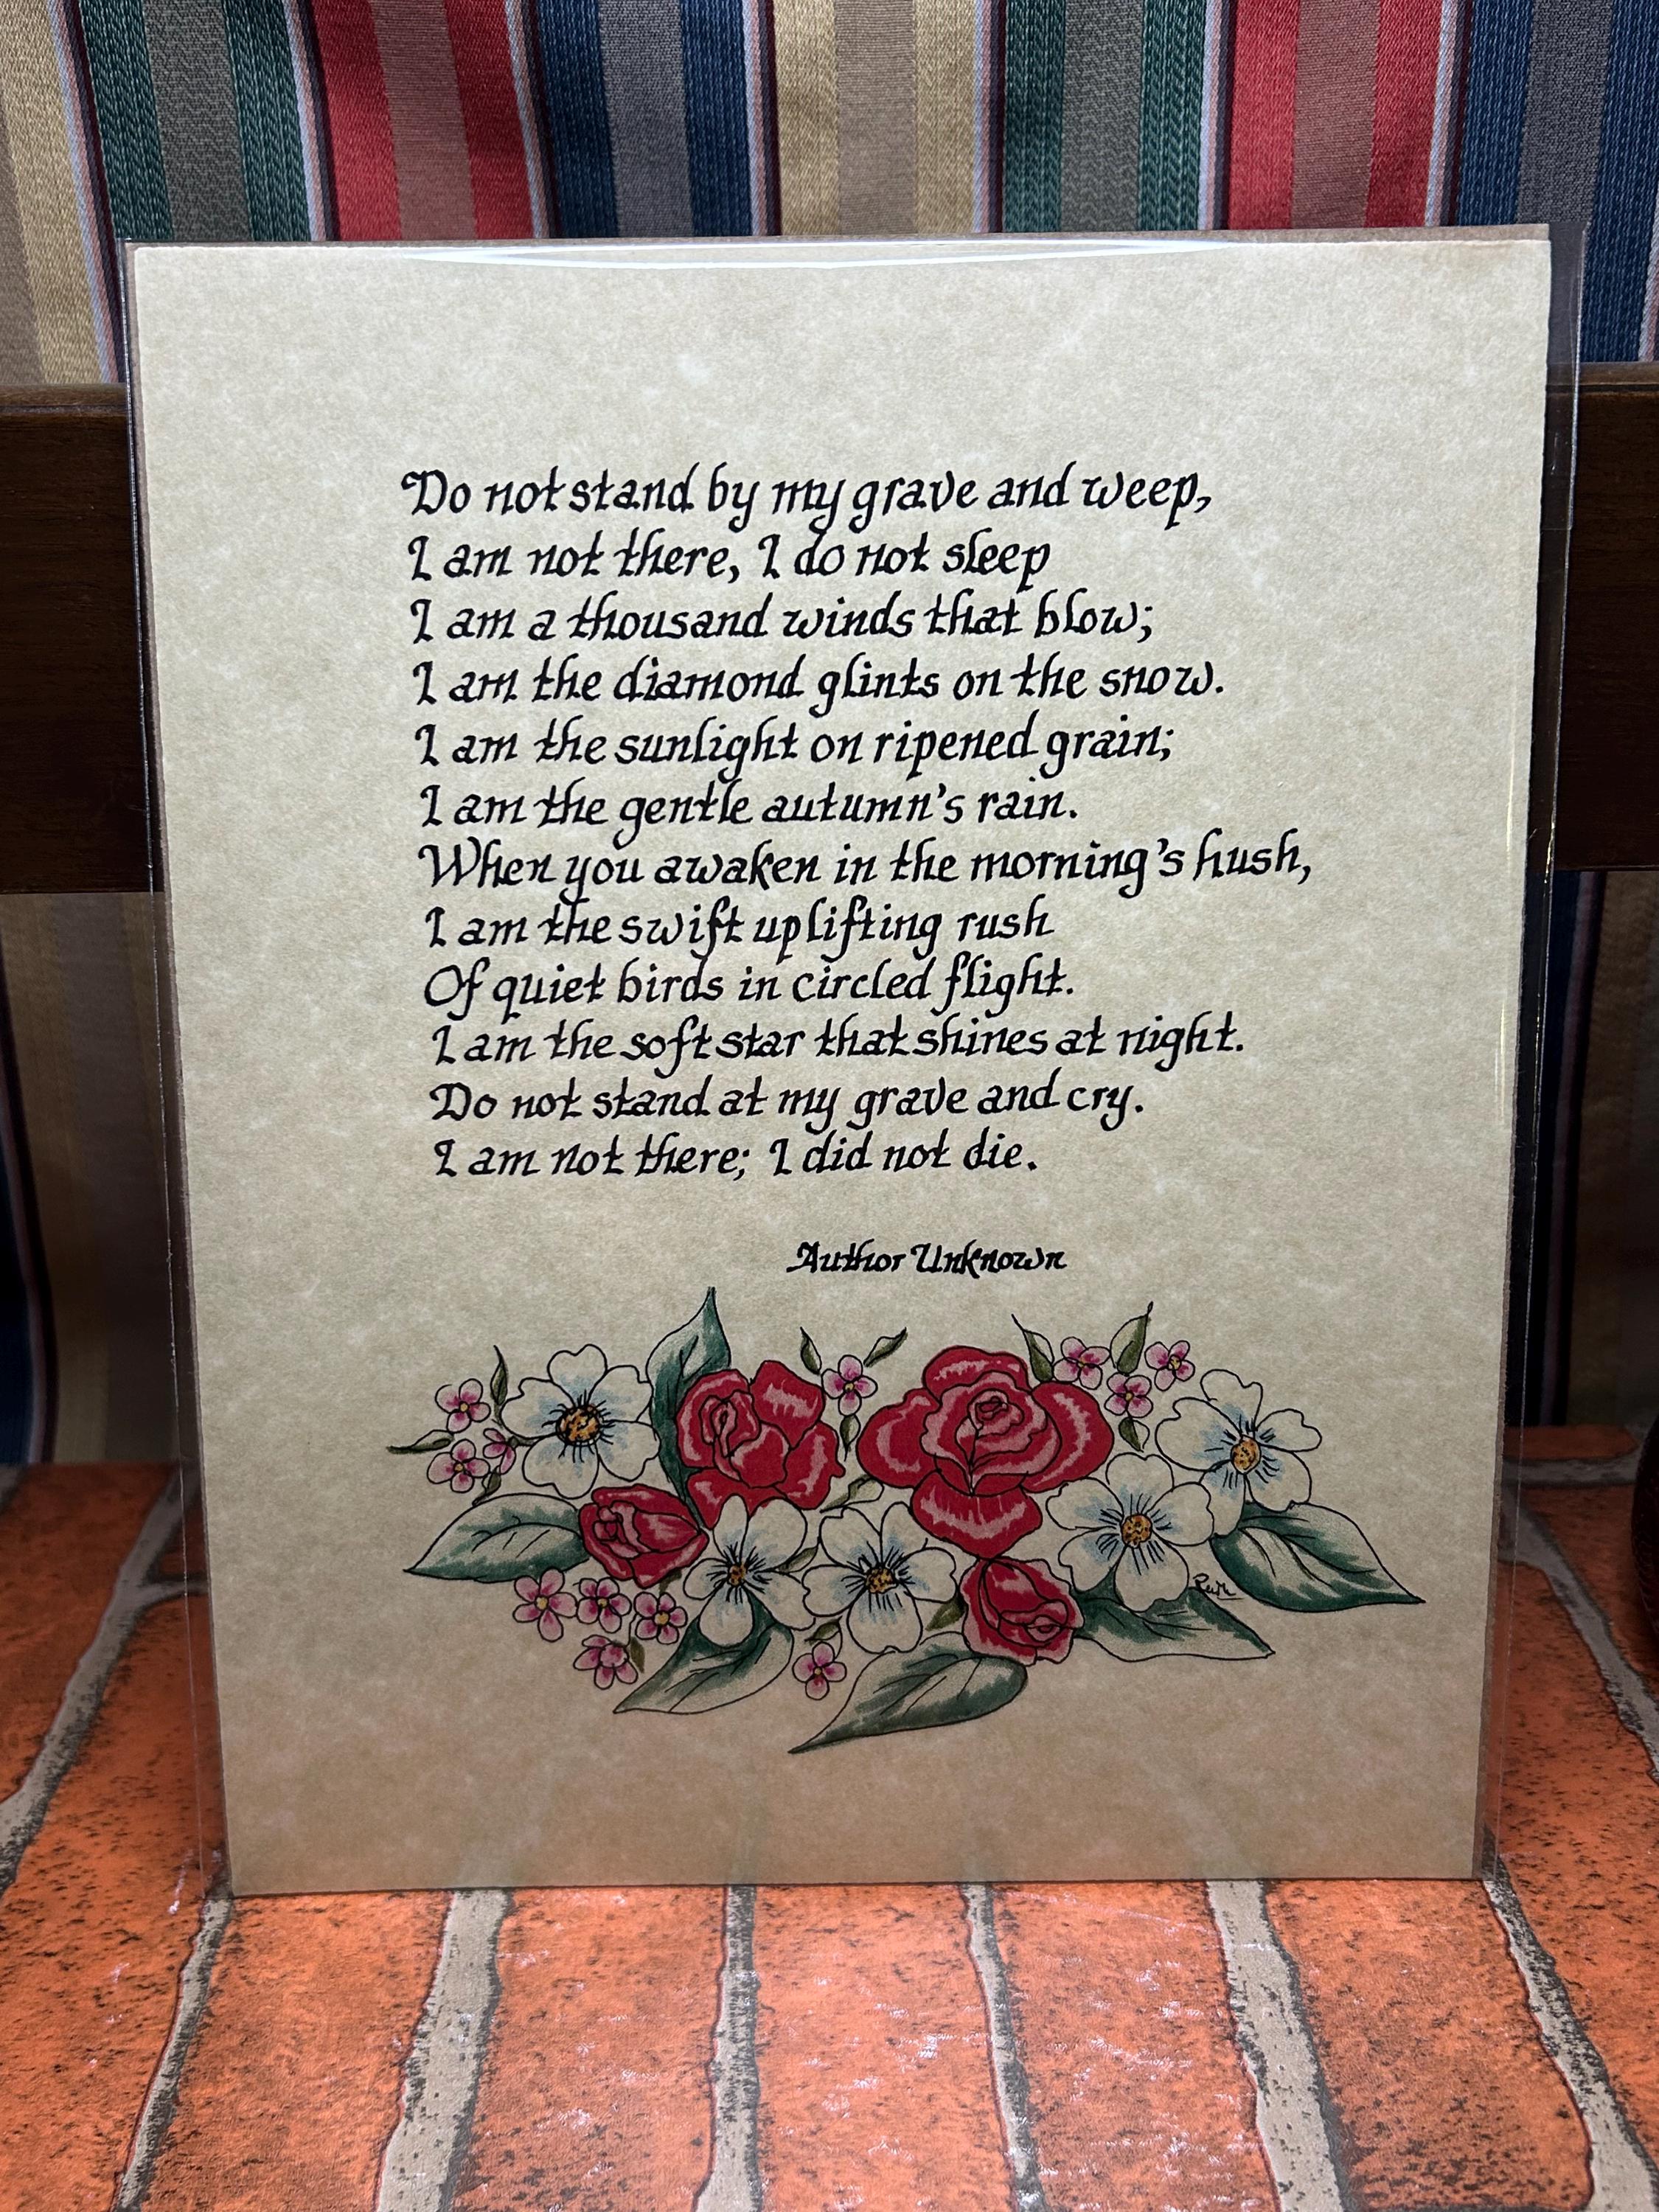 Do not stand by my grave and weep,
I am not there, I do not sleep
I am a thousand winds that blow;
I am the diamond glints on the snow.
I am the sunlight on ripened grain;
I am the gentle autumn's rain.
When you awaken in the morning's hush,
I am the swift uplifting rush
Of quiet birds in circled flight.
I am the soft star that shines at night.
Do not stand at my grave and cry.
I am not there; I did not die.
Author Unknown